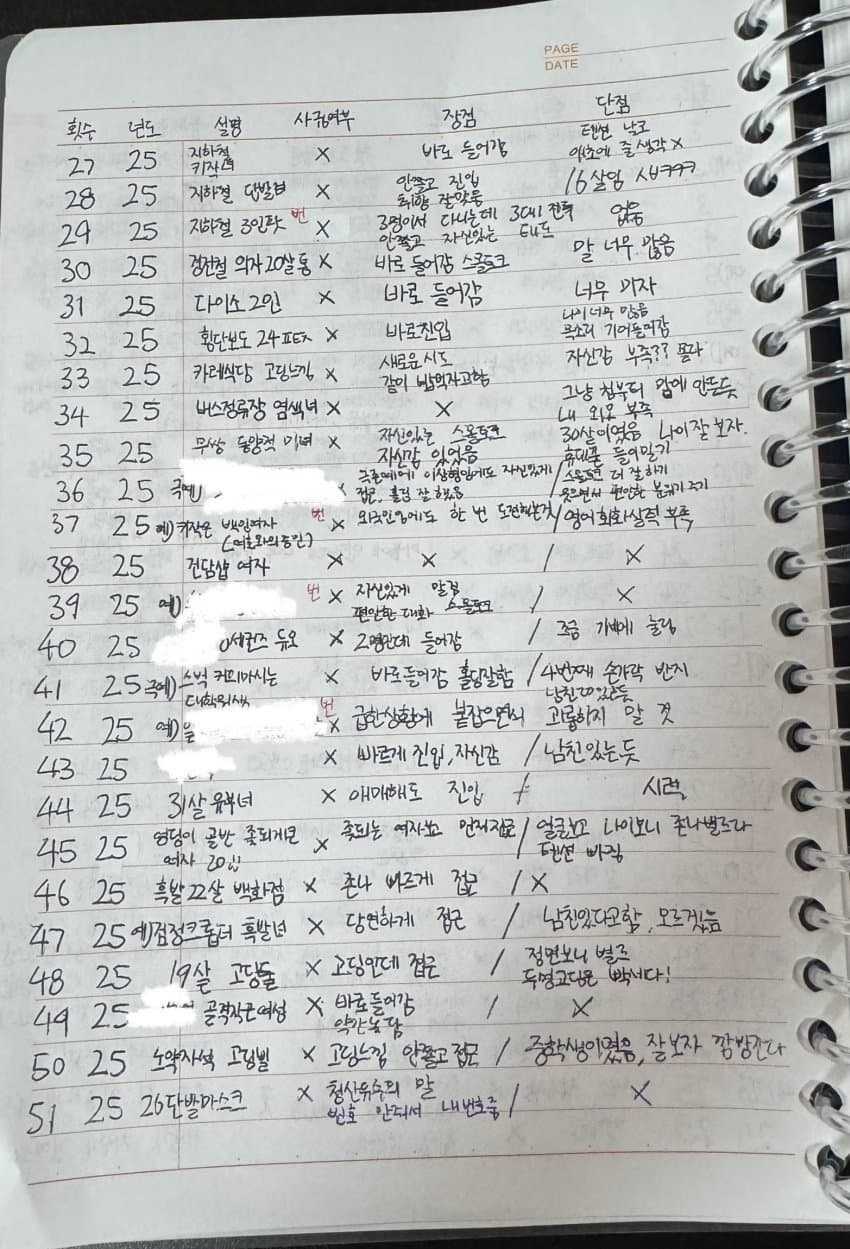 PAGE
DATE
횟수 년도 설명 사귐여부 장점 단점
27 25 지하철 키작녀 X 바로 들어감 텐션 낮고 애초에 줄 생각 X
28 25 지하철 단발녀 X 안쫄고 진입 취향 잘맞춤 16살임 ㅅㅂㅋㅋㅋ
29 25 지하철 3인팟 번 X 3명이서 다니는데 3대1 전투 안쫄고 자신있는 태도 없음
30 25 경전철 의자 20살 통 X 바로 들어감 스몰토크 말 너무 많음
31 25 다이소 2인 X 바로 들어감 너무
32 25 횡단보도 24 X 바로진입 나이 너무 많음 목소리 기어들어감
33 25 카레식당 고딩느낌 X 새로운 시도 같이 밥먹자고함 자신감 부족?? 몰라
34 25 버스정류장 염색녀 X X 그냥 첨부터 맘에 안든듯 내 외모 부족
35 25 무쌍 동양적 미녀 X 자신있는 스몰토크 자신감 있었음 30살이였음 나이 잘 보자. 휴대폰 들이밀기
36 25 극예) X 극존예에 이상형임에도 자신있게 접근, 홀딩 잘했음 / 스몰토크 더 잘하기 웃으면서 편안한 분위기 주기
37 25 예) 키작은 백인여자 번 X 외국인임에도 한 번 도전해본것 / 영어회화실력 부족
38 25 건담샵 여자 X X / X
39 25 예) 번 X 자신있게 말검 편안한 대화 스몰토크 / X
40 25 세컨즈 듀오 X 2명인데 들어감 / 조금 기빽에 눌림
41 25 극예) 스벅 커피마시는 대학원생 X 바로들어감 홀딩잘함 / 4번째 손가락 반지 남친 있는듯
42 25 예) 을 번 X 급한상황에 붙잡으면서 괴롭히지 말 것
43 25 X 빠르게 진입, 자신감 / 남친있는듯
44 25 31살 유부녀 X 애매해도 진입 / 시력
45 25 엉덩이 골반 좆되게큰 여자 20 X 좆되는 여자보고 먼저접근 / 얼굴보고 나이보니 존나별로라 텐션 빠짐
46 25 흑발 22살 백화점 X 존나 빠르게 접근 / X
47 25 예) 검정크롭티 흑발녀 X 당연하게 접근 / 남친있다고함, 모르겠음
48 25 19살 고딩들 X 고딩인데 접근 / 정면보니 별로 두명고딩은 빡세다!
49 25 골격작은여성 X 바로들어감 약간농담 / X
50 25 노약자석 고딩삘 X 고딩느낌 안쫄고접근 / 중학생이였음, 잘보자 깜빵간다
51 25 26단발마스크 X 청산유수의 말 번호 안돼서 내번호줌 / X